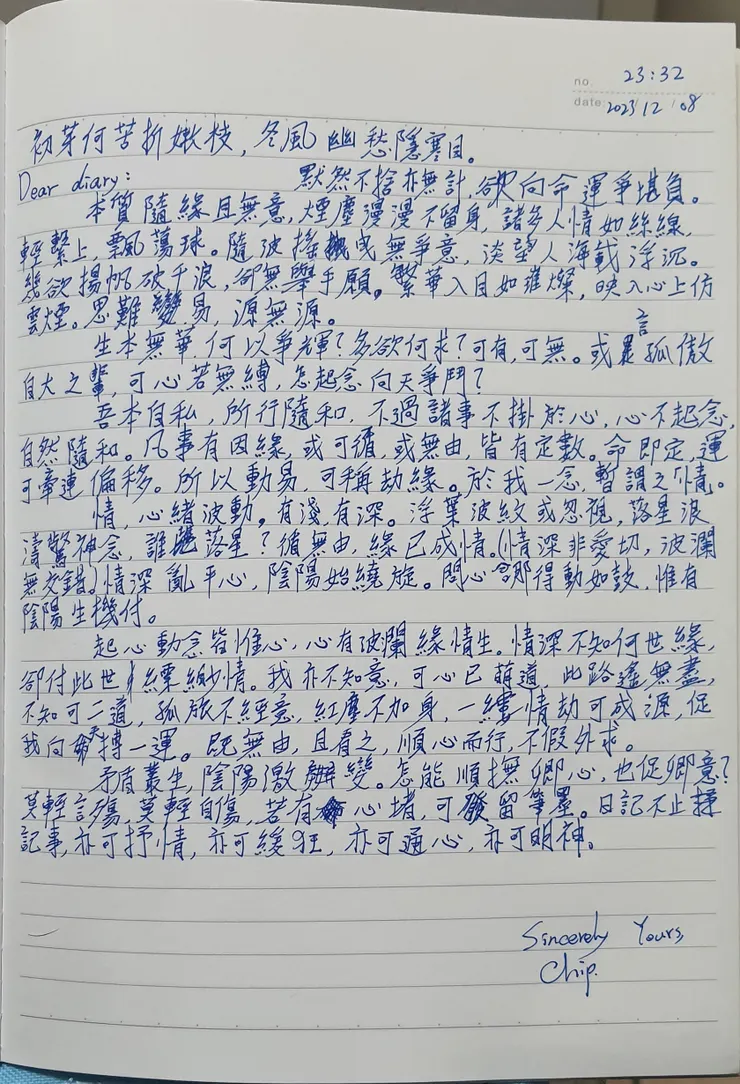 no. 23:32
date 2023/12/08
初芽何苦折嫩枝，冬風幽愁隱寒目。
Dear diary: 默然不捨亦無計，欲向命運爭堪負。
本質隨緣且無意，煙塵漫漫不留身，諸多人情如絲線，
輕繫上，飄蕩球。隨波搖 成無爭意，淡望人海載浮沉。
幾欲揚帆破千浪，卻無舉手願。繁華入目如璀燦，映入心上仿
雲煙。思難變易，源無源。
生本無華何以爭輝？多欲何求？可有，可無。或言是孤傲
自大之輩，可心若無縛，怎起念向天爭鬥？
吾本自私，所行隨和，不過諸事不掛於心，心不起念，
自然隨和。凡事有因緣，或可循，或無由，皆有定數。命即定，運
可牽連偏移。所以動易，可稱劫緣。於我一念，暫謂之「情」。
情，心緒波動，有淺，有深。浮葉波紋或忽視，落星浪
濤驚神念，誰 落星？循無由，緣已成情。(情深非愛切，波瀾
無交錯。)情深亂平心，陰陽始繞旋。問心念那得動如鼓，惟有
陰陽生機付。
起心動念皆惟心，心有波瀾緣情生。情深不知何世緣，
卻付此世 縹緲情。我亦不知意，可心已萌道，此路遙無盡，
不知可二道，孤旅不經意，紅塵不加身，一縷情劫可成源，促
我向天搏一運。既無由，且看之，順心而行，不假外求。
矛盾叢生，陰陽激 變。怎能順撫卿心，也促卿意？
莫輕言殤，莫輕自傷，若有 心堵，可 留筆墨。日記不止擇
記事，亦可抒情，亦可緩狂，亦可通心，亦可明神。
Sincerely Yours,
Chip.